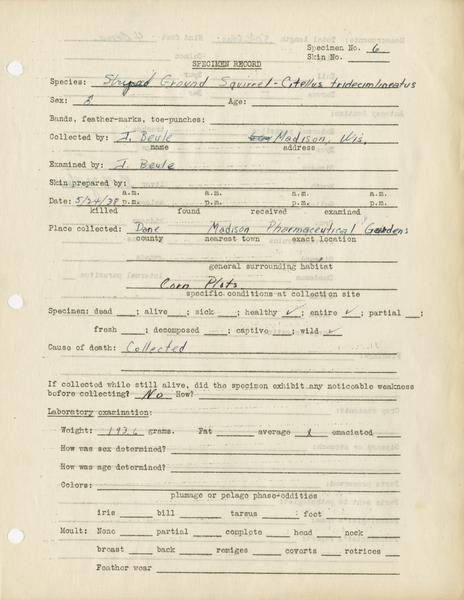 Specimen No. 6
Skin No.
SPECIMEN RECORD
Species: Striped Ground Squirrel - Citellus tridecimlineatus
Sex: Age:
Bands, feather-marks, toe-punches:
Collected by: J. Beule Madison, Wis.
name address
Examined by: J. Beule
Skin prepared by:
a.m. a.m. a.m. a.m.
Date: 5/24/38 p.m. p.m. p.m. p.m.
killed found received examined
Place collected: Dane Madison Pharmaceutical Gardens
county nearest town exact location
general surrounding habitat
Corn Plots
specific conditions at collection site
Specimen: dead ; alive ; sick ; healthy ✓ ; entire ✓ ; partial ;
fresh ; decomposed ; captive ; wild ✓
Cause of death: Collected
If collected while still alive, did the specimen exhibit any noticable weakness
before collecting? No How?
Laboratory examination:
Weight: 193.6 grams. Fat average emaciated
How was sex determined?
How was age determined?
Colors:
plumage or pelage phase-oddities
iris bill tarsus foot
Moult: None partial complete head neck
breast back remiges coverts retrices
Feather wear